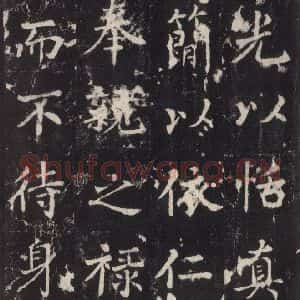 光以悟真
簡以依仁
奉親之禄
而不待身
Shufawang.Cn